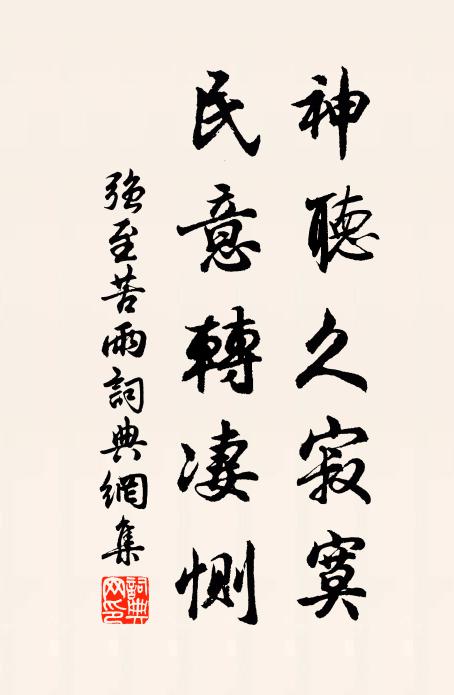 神聽久寂寞
民意轉凄惻
強至苦雨詞典網集
詞典網印